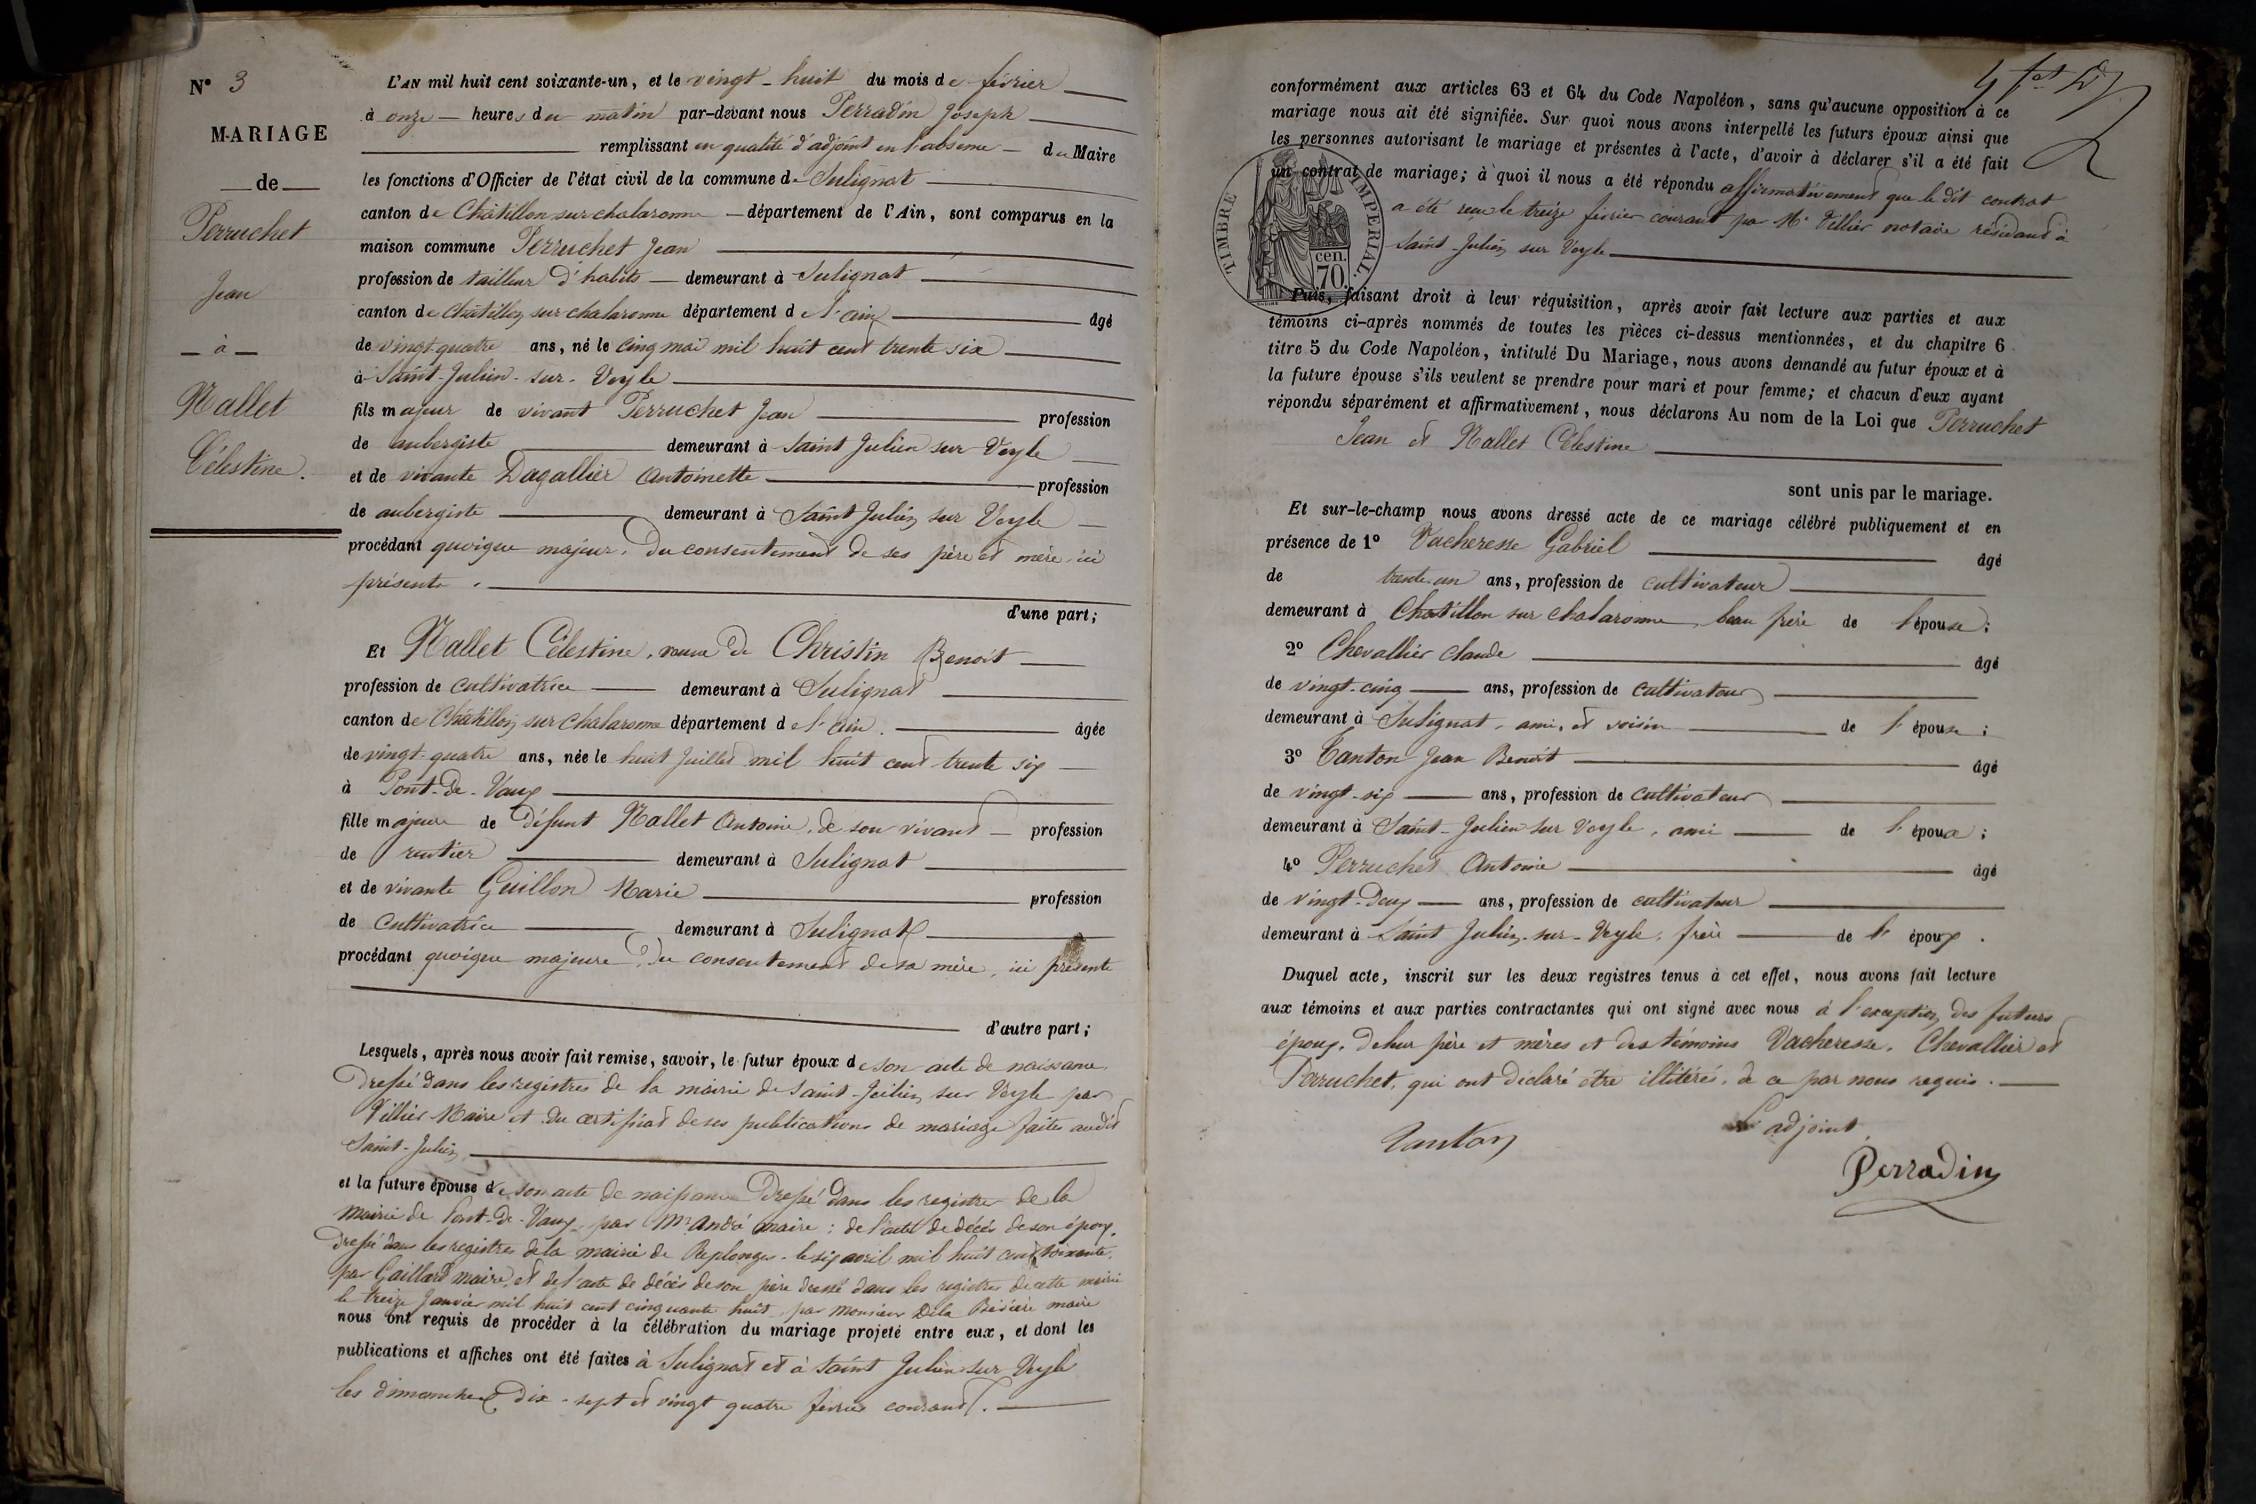 N° 3
MARIAGE
de
Perruchet
Jean
à
Mallet
Célestine.
L'AN mil huit cent soixante-un, et le vingt-huit du mois de février
à onze heures du matin par-devant nous Perradin Joseph
remplissant en qualité d'adjoint en l'absence du Maire
les fonctions d'Officier de l'état civil de la commune de Sulignat
canton de Châtillon sur chalaronne département de l'Ain, sont comparus en la
maison commune Perruchet Jean
profession de tailleur d'habits demeurant à Sulignat
canton de Châtillon sur chalaronne département de l'ain âgé
de vingt-quatre ans, né le cinq mai mil huit cent trente six
à Saint-Julien-sur-Veyle
fils majeur de vivant Perruchet Jean profession
de aubergiste demeurant à Saint Julien sur Veyle
et de vivante Dagallier Antoinette profession
de aubergiste demeurant à Saint Julien sur Veyle
procédant quoique majeur, du consentement de ses père et mère ici
présents.
d'une part;
Et Mallet Célestine, veuve de Christin Benoit
profession de cultivatrice demeurant à Sulignat
canton de Châtillon sur Chalaronne département de l'ain. âgée
de vingt-quatre ans, née le huit juillet mil huit cent trente six
à Pont-de-Vaux
fille majeure de défunt Mallet Antoine, de son vivant profession
de rentier demeurant à Sulignat
et de vivante Guillon Marie profession
de cultivatrice demeurant à Sulignat
procédant quoique majeure, du consentement de sa mère, ici présente
d'autre part;
Lesquels, après nous avoir fait remise, savoir, le futur époux de son acte de naissance
dressé dans les registres de la mairie de Saint-Julien sur Veyle par
Villier Maire et du certificat de ses publications de mariage faites audit
Saint-Julien
et la future épouse de son acte de naissance dressé dans les registres de la
mairie de Pont-de-Vaux par Mr André maire; de l'acte de décès de son époux,
dressé dans les registres de la mairie de Replonges le six avril mil huit cent soixante,
par Gaillard maire, et de l'acte de décès de son père dressé dans les registres de cette mairie
le treize Janvier mil huit cent cinquante huit, par Monsieur Dela Bévière maire
nous ont requis de procéder à la célébration du mariage projeté entre eux, et dont les
publications et affiches ont été faites à Sulignat et à Saint Julien-sur-Veyle
les dimanches dix-sept et vingt quatre février courant.
conformément aux articles 63 et 64 du Code Napoléon, sans qu'aucune opposition à ce
mariage nous ait été signifiée. Sur quoi nous avons interpellé les futurs époux ainsi que
les personnes autorisant le mariage et présentes à l'acte, d'avoir à déclarer s'il a été fait
un contrat de mariage; à quoi il nous a été répondu affirmativement que le dit contrat
a été reçu le treize février courant par Me Villier notaire résidant à
Saint-Julien sur Veyle
TIMBRE IMPERIAL.
cen.
70.
Puis, faisant droit à leur réquisition, après avoir fait lecture aux parties et aux
témoins ci-après nommés de toutes les pièces ci-dessus mentionnées, et du chapitre 6
titre 5 du Code Napoléon, intitulé Du Mariage, nous avons demandé au futur époux et à
la future épouse s'ils veulent se prendre pour mari et pour femme; et chacun d'eux ayant
répondu séparément et affirmativement, nous déclarons Au nom de la Loi que Perruchet
Jean et Mallet Célestine
sont unis par le mariage.
Et sur-le-champ nous avons dressé acte de ce mariage célébré publiquement et en
présence de 1° Vacheresse Gabriel âgé
de trente-un ans, profession de cultivateur
demeurant à Chatillon sur chalaronne, beau frère de l'épouse;
2° Chevallier claude âgé
de vingt-cinq ans, profession de cultivateur
demeurant à Sulignat, ami, et voisin de l'épouse;
3° Tanton Jean Benoît âgé
de vingt-six ans, profession de cultivateur
demeurant à Saint-Julien sur Veyle, ami de l'époux;
4° Perruchet Antoine âgé
de vingt-deux ans, profession de cultivateur
demeurant à Saint Julien-sur-Veyle, frère de l'époux.
Duquel acte, inscrit sur les deux registres tenus à cet effet, nous avons fait lecture
aux témoins et aux parties contractantes qui ont signé avec nous à l'exception des futurs
époux, de leur père et mères et des témoins Vacheresse, Chevallier et
Perruchet, qui ont déclaré être illitérés, de ce par nous requis.
Tanton
L'adjoint,
Perradin